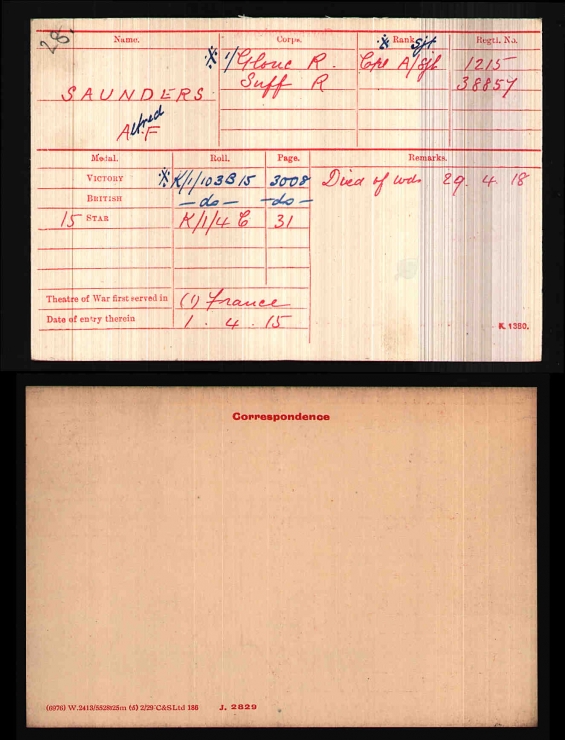 28.
Name. Corps. Rank Sjt Regtl. No.
※ 1/ Glouc R. Cpl A/Sjt 1215
SAUNDERS Suff R 38857
Alfred F
Medal. Roll. Page. Remarks.
VICTORY ※ K/1/103B15 3008 Died of wds 29. 4. 18
BRITISH —do— —do—
15 STAR K/1/4 C 31
Theatre of War first served in (1) France
Date of entry therein 1. 4. 15
K. 1380.
Correspondence
(6976) W.2413/5528 25m (5) 2/29 C&SLtd 186 J. 2829